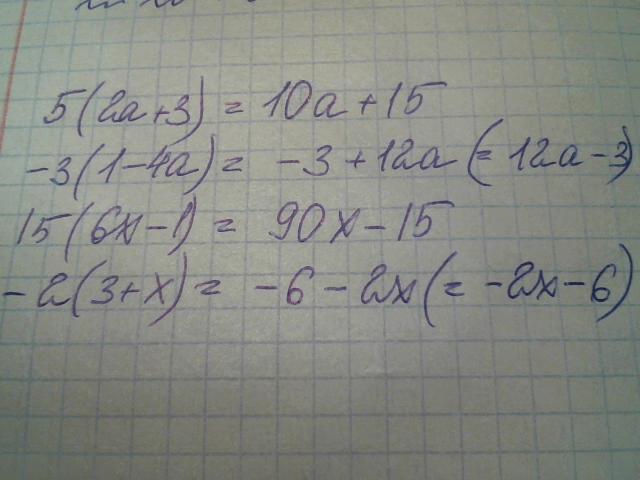 5(2a+3) = 10a+15
-3(1-4a) = -3+12a (= 12a-3)
15(6x-1) = 90x-15
-2(3+x) = -6-2x (= -2x-6)